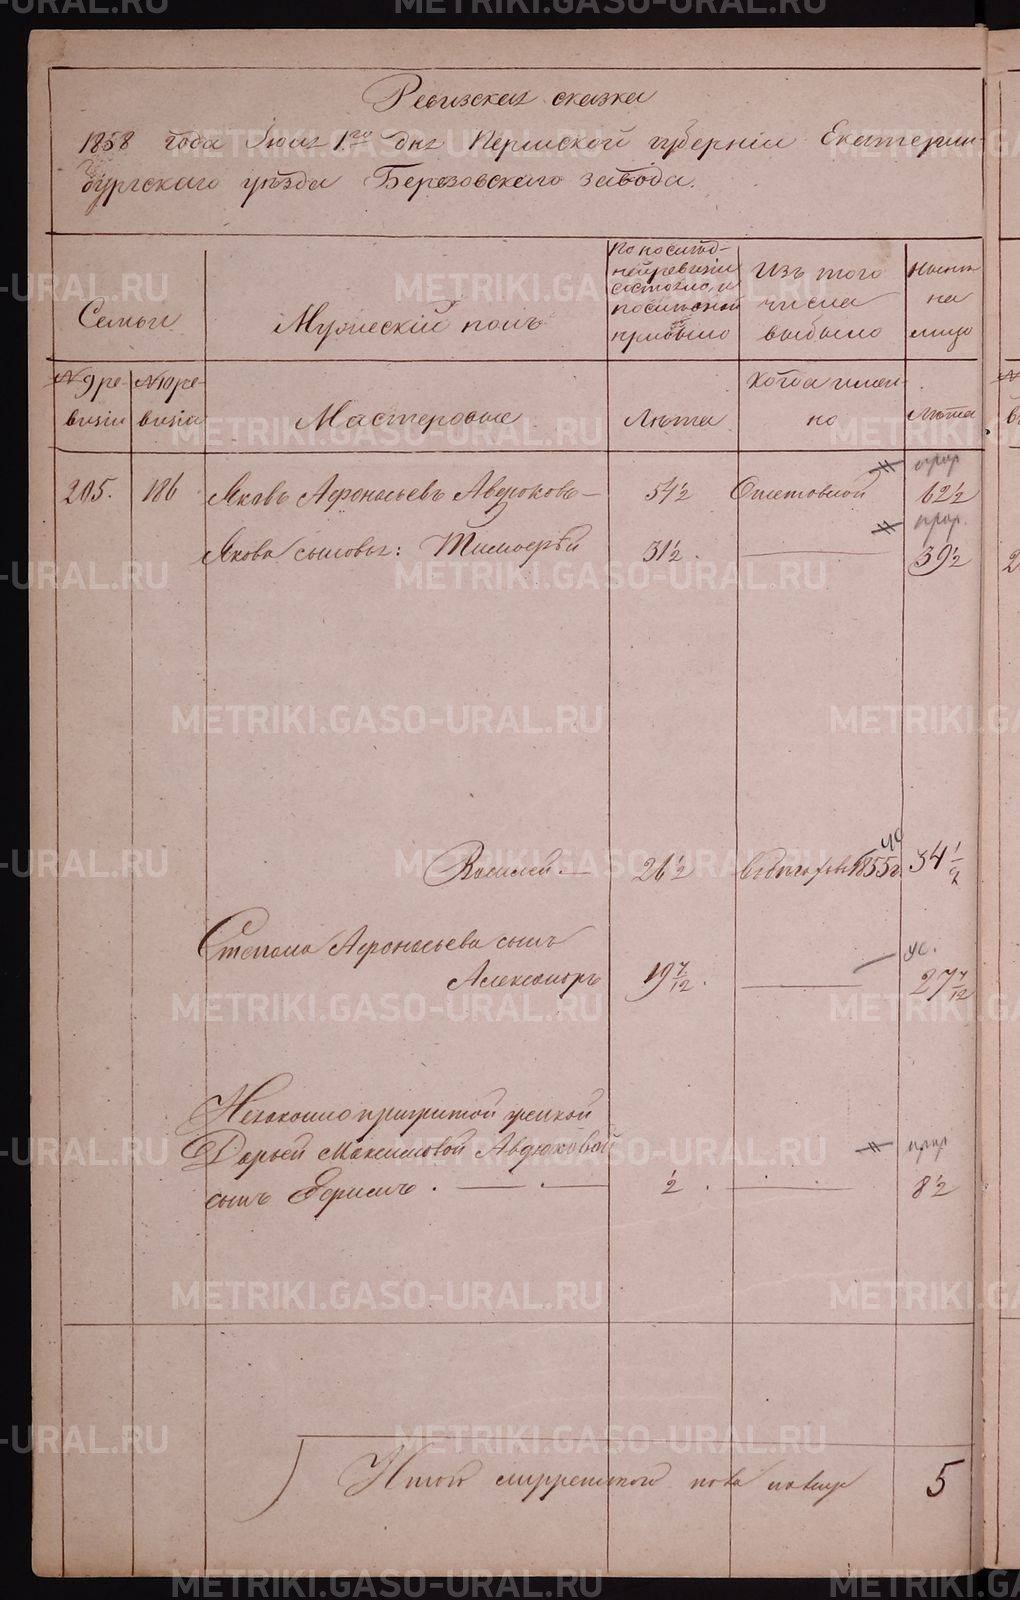 Ревизская сказка
1858 года Июня 1го дня Пермской губернии Екатерин-
бургского уѣзда Березовскаго завода.
Семьи
Мужескій полъ
По послѣд-
ней ревизіи
состояло, и
послѣ оной
прибыло
Изъ того
числа
выбыло
Ныне
на
лицо
№ 9 ре-
визіи
№ 10 ре-
визіи
Мастеровые
Лѣта
Когда имен-
но
Лѣта
205. 186 Яковъ Афонасьевъ Авдюковъ — 54½ Отставной 62½
Якова сыновья: Тимофѣй 31½. 39½
Василей — 26½ 1855 34½
Степана Афонасьева сынъ
Александръ 19 7/12. 27 7/12
Незаконно прижитой женкой
Дарьей Максимовой Авдюковой
сынъ Борисъ. ½. 8½
Итого мужескаго пола 5
METRIKI.GASO-URAL.RU